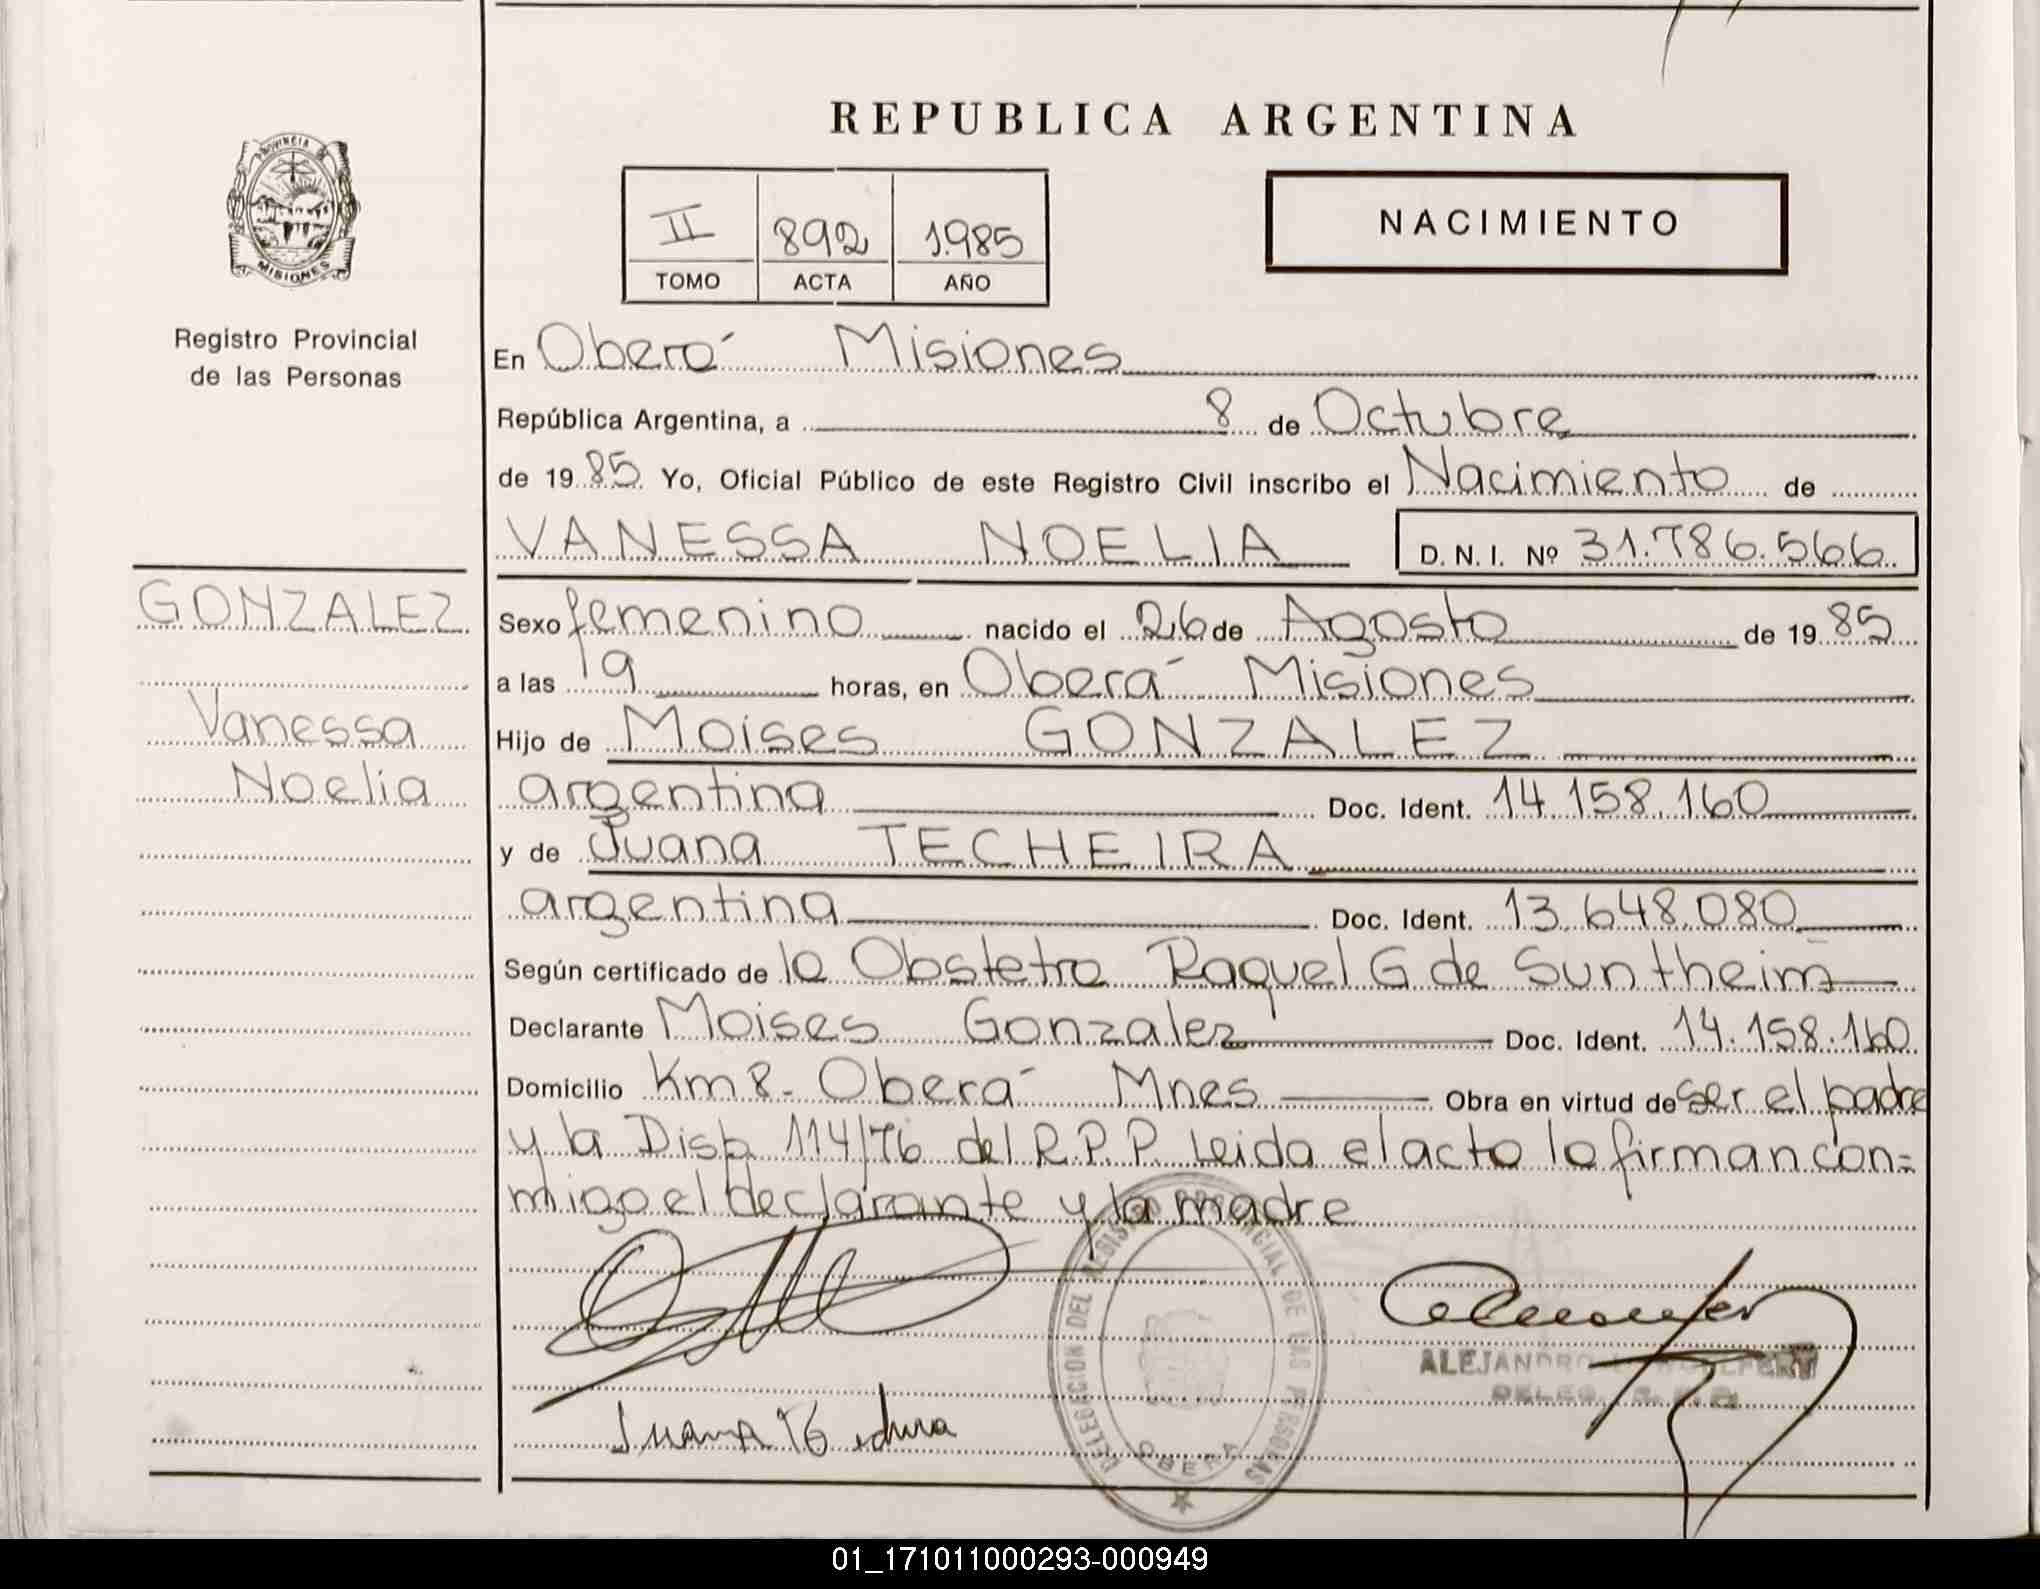 REPUBLICA ARGENTINA
PROVINCIA DE
MISIONES
Registro Provincial
de las Personas
II 892 1.985
TOMO ACTA AÑO
NACIMIENTO
En Oberá Misiones
República Argentina, a 8 de Octubre
de 19 85. Yo, Oficial Público de este Registro Civil inscribo el Nacimiento de
VANESSA NOELIA D. N. I. Nº 31.786.566.
GONZALEZ
Vanessa
Noelia
Sexo femenino nacido el 26 de Agosto de 19 85
a las 19 horas, en Oberá Misiones
Hijo de Moises GONZALEZ
argentina Doc. Ident. 14.158.160
y de Juana TECHEIRA
argentina Doc. Ident. 13.648.080
Según certificado de la Obstetra Raquel G de Suntheim
Declarante Moises Gonzalez Doc. Ident. 14.158.160
Domicilio Km 8 - Oberá Mnes Obra en virtud de ser el padre
y la Disp. 114/76 del R.P.P. Leida el acto lo firman con=
migo el declarante y la madre
DELEGACION DEL REGISTRO PROVINCIAL DE LAS PERSONAS
OBERA
ALEJANDRO
Juana
01_171011000293-000949